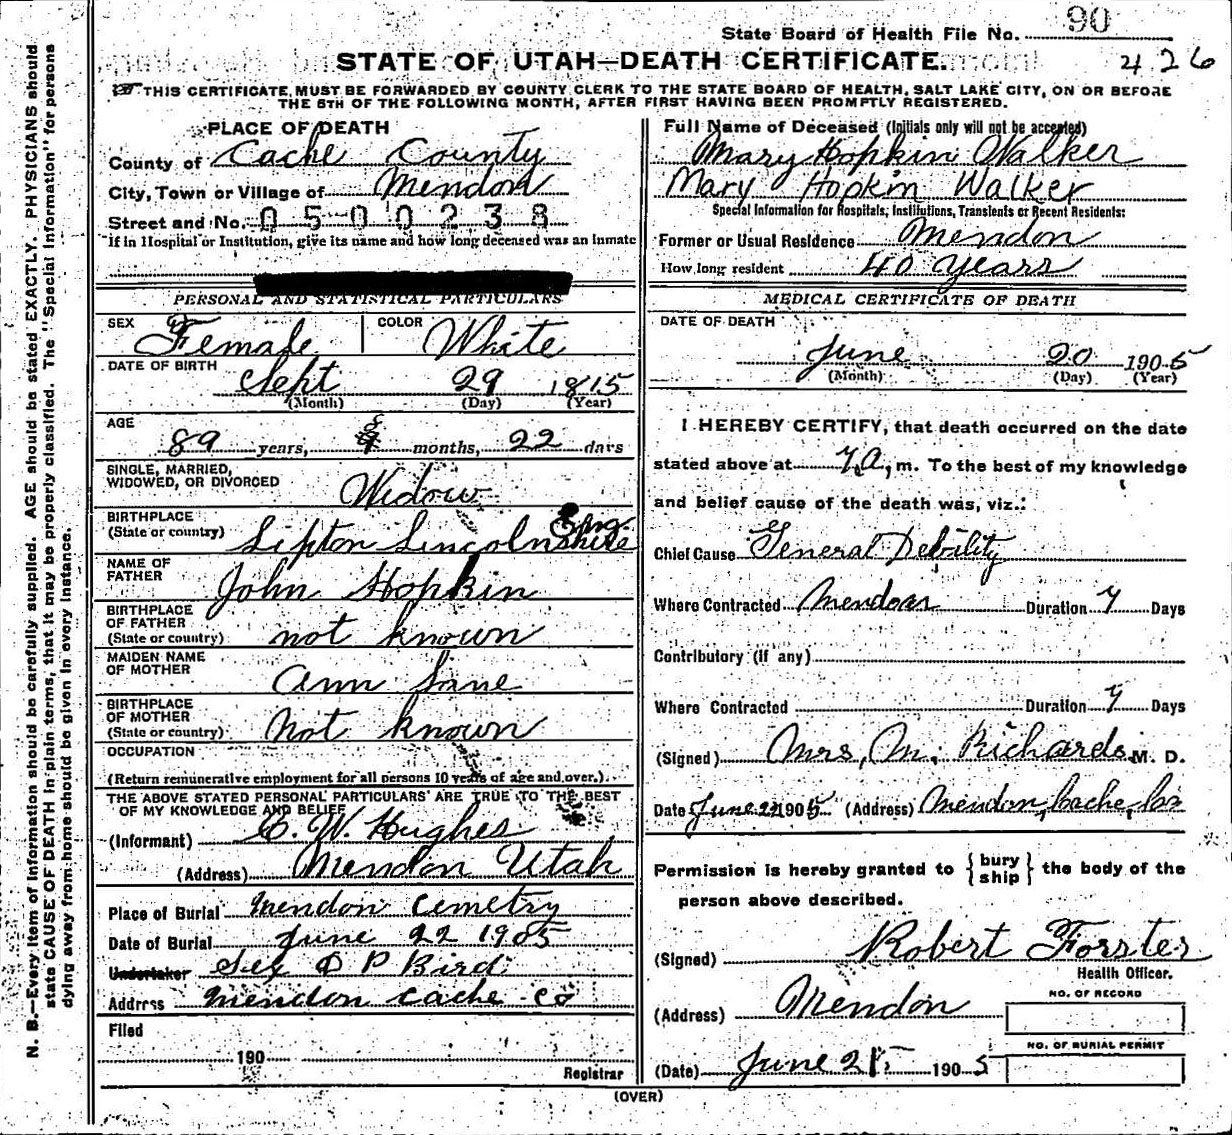 State Board of Health File No. 90
STATE OF UTAH—DEATH CERTIFICATE.
426
THIS CERTIFICATE MUST BE FORWARDED BY COUNTY CLERK TO THE STATE BOARD OF HEALTH, SALT LAKE CITY, ON OR BEFORE
THE 5TH OF THE FOLLOWING MONTH, AFTER FIRST HAVING BEEN PROMPTLY REGISTERED.
PLACE OF DEATH
County of Cache County
City, Town or Village of Mendon
Street and No. 0500238
If in Hospital or Institution, give its name and how long deceased was an inmate
PERSONAL AND STATISTICAL PARTICULARS
SEX Female COLOR White
DATE OF BIRTH Sept 29 1815
(Month) (Day) (Year)
AGE
89 years, 8 months, 22 days
SINGLE, MARRIED,
WIDOWED, OR DIVORCED Widow
BIRTHPLACE
(State or country) Lipton Lincolnshire Eng
NAME OF
FATHER John Hopkin
BIRTHPLACE
OF FATHER
(State or country) not known
MAIDEN NAME
OF MOTHER Ann Lane
BIRTHPLACE
OF MOTHER
(State or country) Not known
OCCUPATION
(Return remunerative employment for all persons 10 years of age and over.)
THE ABOVE STATED PERSONAL PARTICULARS ARE TRUE TO THE BEST
OF MY KNOWLEDGE AND BELIEF
(Informant) C. W. Hughes
(Address) Mendon Utah
Place of Burial Mendon Cemetry
Date of Burial June 22 1905
Undertaker Sex O P Bird
Address Mendon Cache Co
Filed
190
Registrar
Full Name of Deceased (Initials only will not be accepted)
Mary Hopkin Walker
Mary Hopkin Walker
Special Information for Hospitals, Institutions, Transients or Recent Residents:
Former or Usual Residence Mendon
How long resident 40 years
MEDICAL CERTIFICATE OF DEATH
DATE OF DEATH
June 20 1905
(Month) (Day) (Year)
I HEREBY CERTIFY, that death occurred on the date
stated above at 7 a, m. To the best of my knowledge
and belief cause of the death was, viz.:
Chief Cause General Debility
Where Contracted Mendon Duration 7 Days
Contributory (if any)
Where Contracted Duration 7 Days
(Signed) Mrs, M. Richards M. D.
Date June 21 1905 (Address) Mendon, Cache, Co
Permission is hereby granted to {bury
ship} the body of the
person above described.
(Signed) Robert Forster
Health Officer.
(Address) Mendon
NO. OF RECORD
NO. OF BURIAL PERMIT
(Date) June 21 1905
(OVER)
N. B.—Every item of information should be carefully supplied. AGE should be stated EXACTLY. PHYSICIANS should
state CAUSE OF DEATH in plain terms, that it may be properly classified. The "Special Information" for persons
dying away from home should be given in every instance.